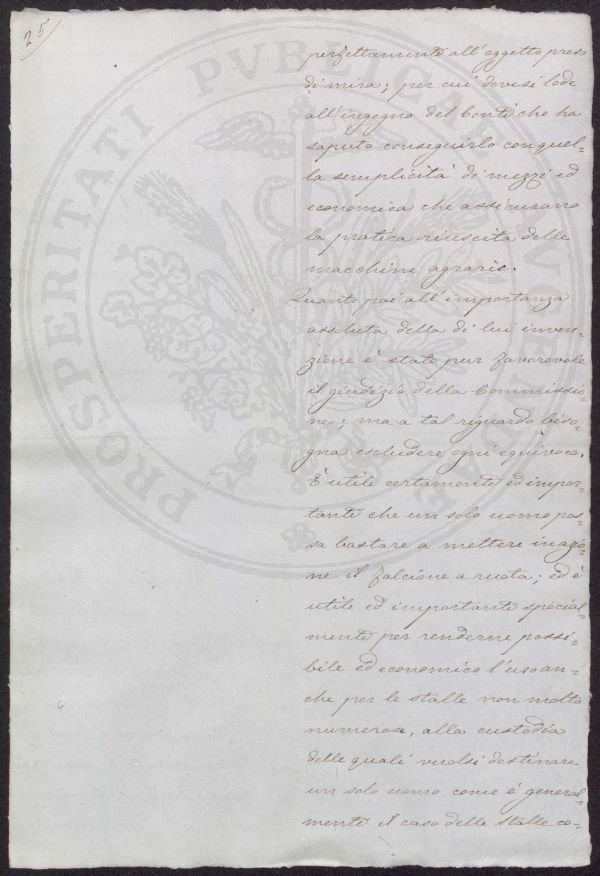 25
perfettamente all'oggetto preso
di mira; per cui devesi lode
all'ingegno del Conti che ha
saputo conseguirlo con quel-
la semplicità di mezzi ed
economica che assicurano
la pratica riuscita delle
macchine agrarie.
Quanto poi all'importanza
assoluta della di lui inven-
zione è stato pur favorevole
il giudizio della Commissio-
ne; ma a tal riguardo biso-
gna escludere ogni equivoco.
È utile certamente ed impor-
tante che un solo uomo pos-
sa bastare a mettere in azio-
ne il falcione a ruota; ed è
utile ed importante special-
mente per renderne possi-
bile ed economico l'uso an-
che per le stalle non molto
numerose, alla custodia
delle quali vuolsi destinare
un solo uomo come è general-
mente il caso delle stalle co-
PROSPERITATI PVBLICAE AVGENDAE